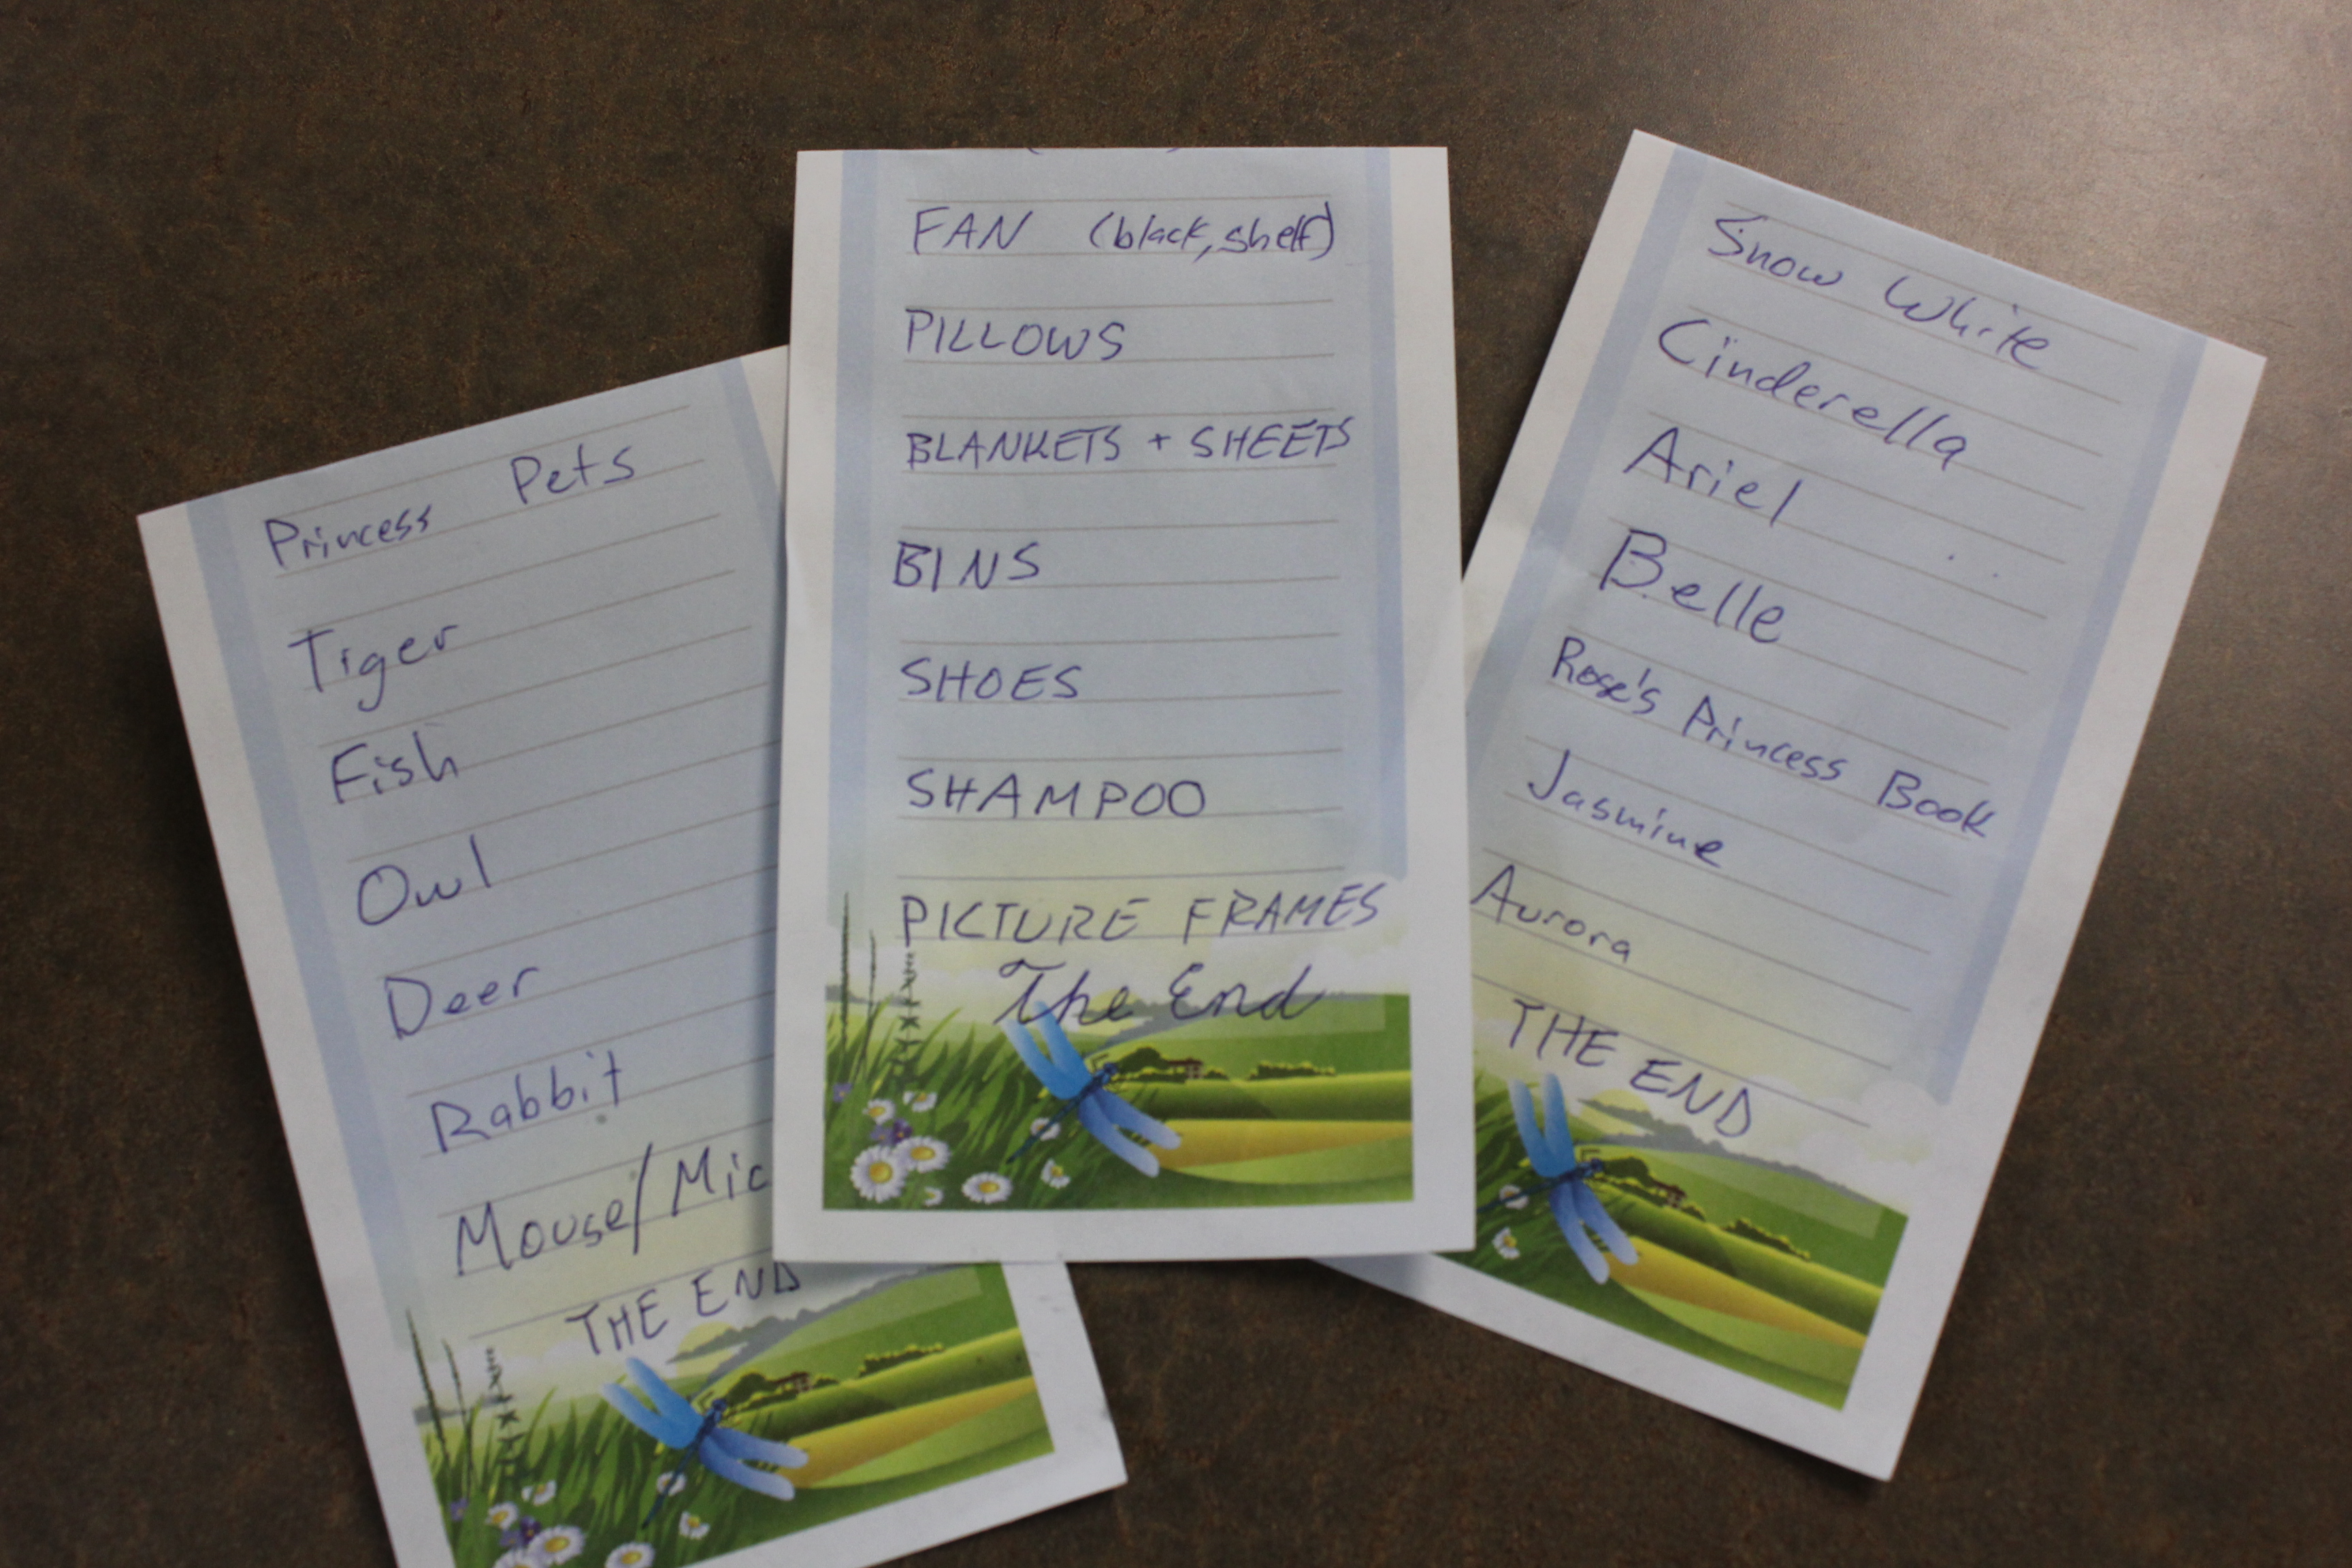 Princess Pets
Tiger
Fish
Owl
Deer
Rabbit
Mouse/Mic
THE END
FAN (black, shelf)
PILLOWS
BLANKETS + SHEETS
BINS
SHOES
SHAMPOO
PICTURE FRAMES
The End
Snow White
Cinderella
Ariel
Belle
Rose's Princess Book
Jasmine
Aurora
THE END